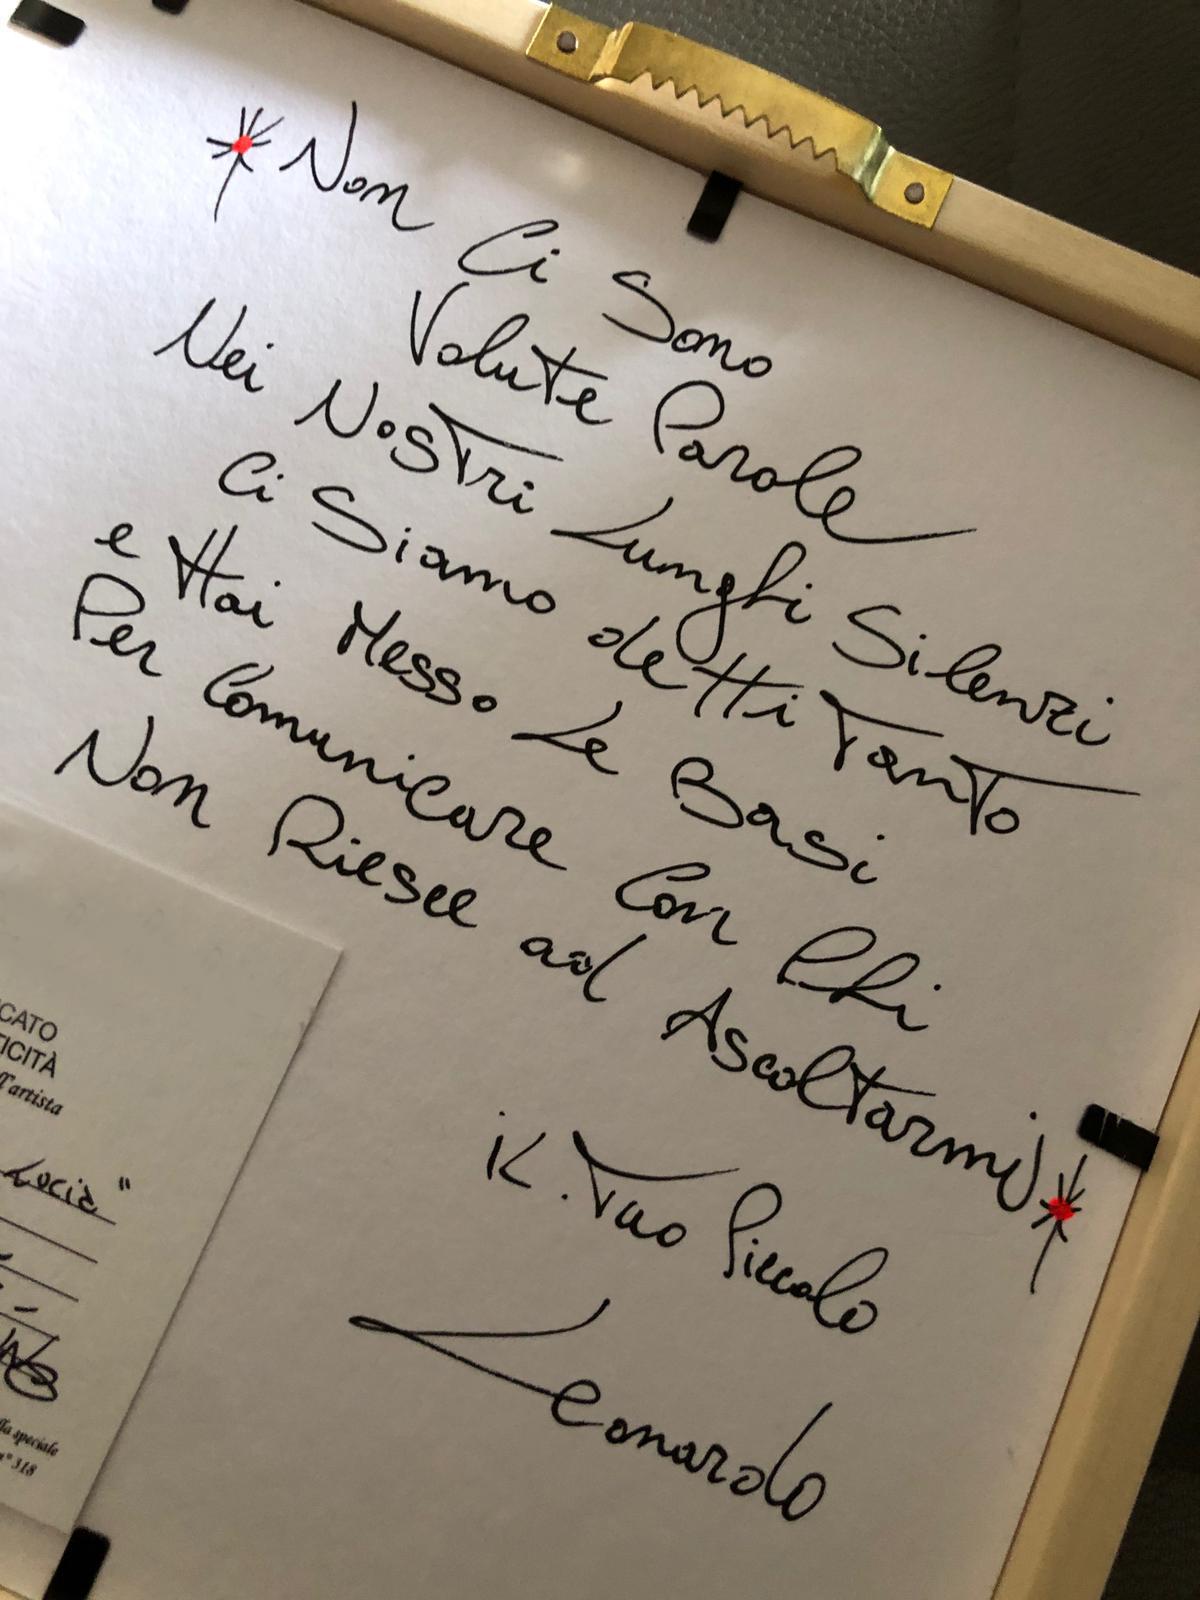 Non Ci Sono
Volute Parole
Nei Nostri Lunghi Silenzi
Ci Siamo detti Tanto
e Hai Messo Le Basi
Per Comunicare Con Chi
Non Riesce ad Ascoltarmi
il Tuo Piccolo
Leonardo
CATO
TICITÀ
l'artista
Lucia"
la speciale
n° 318